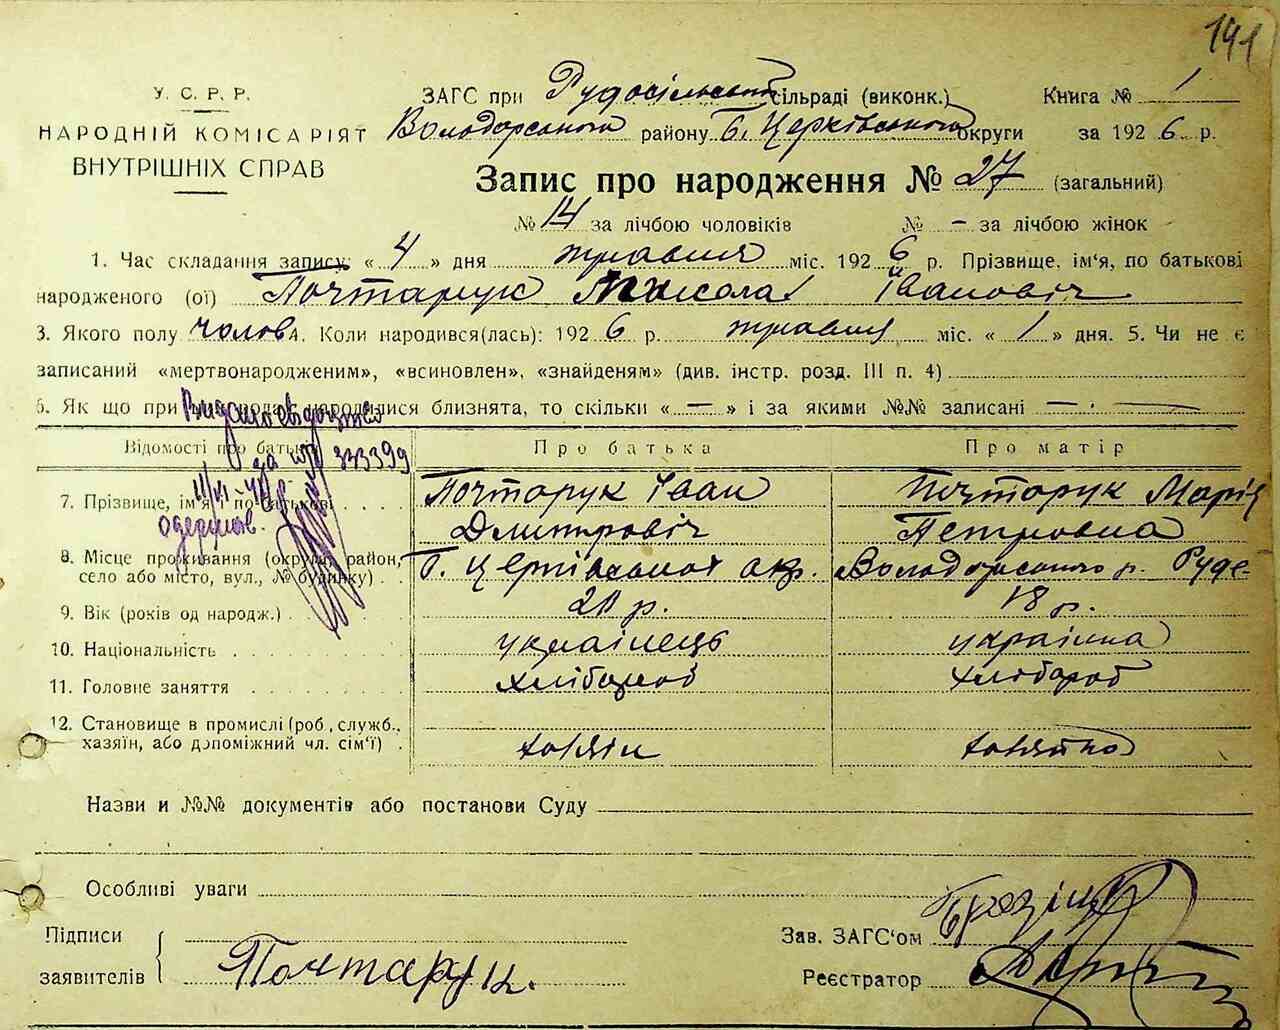 191
У. С. Р. Р.
НАРОДНІЙ КОМІСАРІЯТ
ВНУТРІШНІХ СПРАВ
ЗАГС при Рудосільській сільраді (виконк.) Книга № 1
Володарського району Б. Церківського округи за 1926 р.
Запис про народження № 27 (загальний)
№ 14 за лічбою чоловіків № — за лічбою жінок
1. Час складання запису: «4» дня травня міс. 1926 р. Прізвище, ім'я, по батькові
народженого (ої) Почтарук Микола Іванович
3. Якого полу чолов 4. Коли народився(лась): 1926 р. травня міс. «1» дня. 5. Чи не є
записаний «мертвонародженим», «всиновлен», «знайденям» (див. інстр. розд. III п. 4)
6. Як що при пологах народилися близнята, то скільки «—» і за якими №№ записані —
Відомості про батьків Про батька Про матір
333399
7. Прізвище, ім'я, по батькові Почтарук Іван Дмитрович Почтарук Марія Петровна
8. Місце проживання (округа, район, село або місто, вул., № будинку) Б. Церківської окр. Володарського р. Руде-
9. Вік (років од народж.) 21 р. 18 р.
10. Національність українець українка
11. Головне заняття хлібороб хлібороб
12. Становище в промислі (роб., служб., хазяїн, або допоміжний чл. сім'ї) хазяїн хазяйка
Назви и №№ документів або постанови Суду
Особливі уваги
Підписи
заявителів Почтарук.
Зав. ЗАГС'ом
Реєстратор